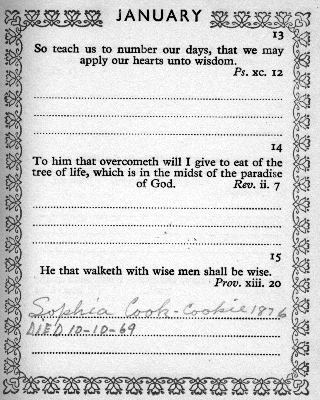 JANUARY
13
So teach us to number our days, that we may
apply our hearts unto wisdom.
Ps. xc. 12
14
To him that overcometh will I give to eat of the
tree of life, which is in the midst of the paradise
of God. Rev. ii. 7
15
He that walketh with wise men shall be wise.
Prov. xiii. 20
Sophia Cook-Cookie 1876
DIED 10-10-69